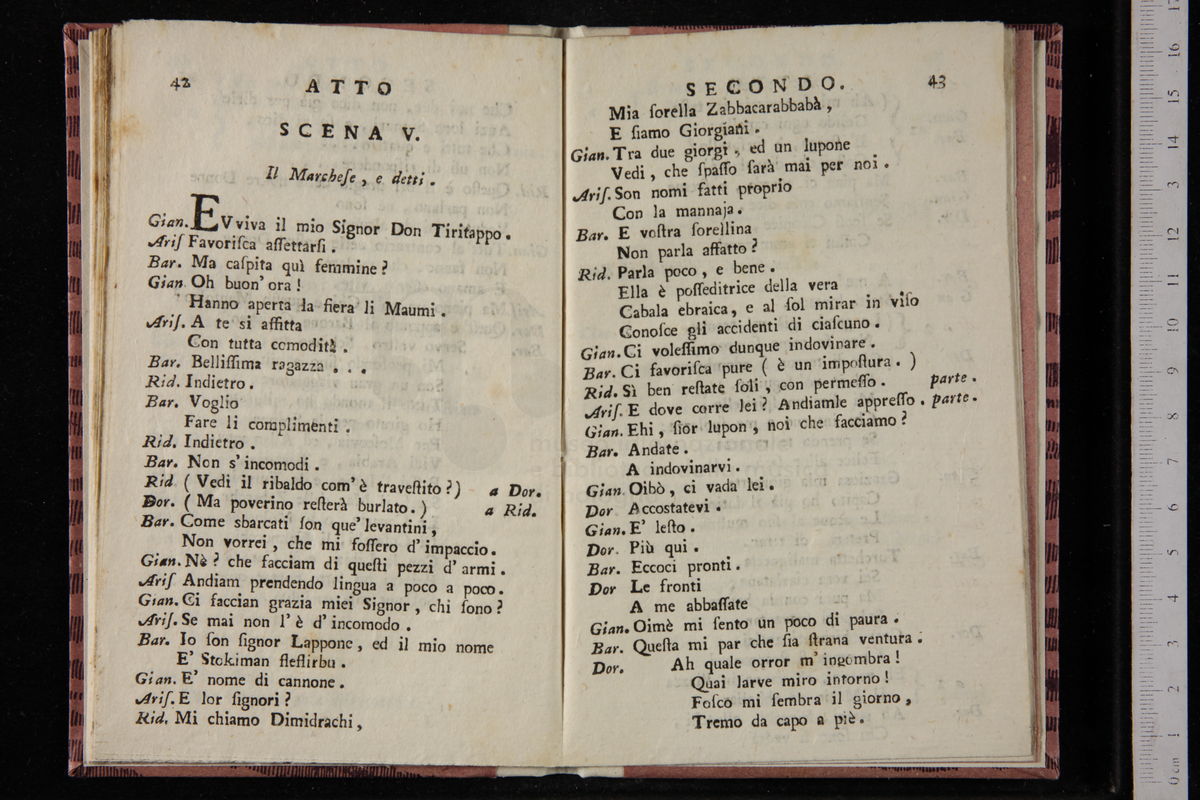 42
ATTO
SCENA V.
Il Marcheſe, e detti.
Gian. EVviva il mio Signor Don Tiritappo.
Ariſ Favoriſca aſſettarſi.
Bar. Ma caſpita quì femmine?
Gian Oh buon' ora!
Hanno aperta la fiera li Maumi.
Ariſ. A te si affitta
Con tutta comodità.
Bar. Belliſſima ragazza . . .
Rid. Indietro.
Bar. Voglio
Fare li complimenti.
Rid. Indietro.
Bar. Non s'incomodi.
Rid (Vedi il ribaldo com'è traveſtito?) a Dor.
Dor. (Ma poverino reſterà burlato.) a Rid.
Bar. Come sbarcati ſon que' levantini,
Non vorrei, che mi foſſero d'impaccio.
Gian. Nè? che facciam di queſti pezzi d'armi.
Ariſ Andiam prendendo lingua a poco a poco.
Gian. Ci faccian grazia miei Signor, chi ſono?
Ariſ. Se mai non l'è d'incomodo.
Bar. Io ſon ſignor Lappone, ed il mio nome
E' Stokiman fleſlirbu.
Gian. E' nome di cannone.
Ariſ. E lor ſignori?
Rid. Mi chiamo Dimidrachi,
SECONDO.
43
Mia ſorella Zabbacarabbabà,
E ſiamo Giorgiani.
Gian. Tra due giorgi, ed un lupone
Vedi, che ſpaſſo ſarà mai per noi.
Ariſ. Son nomi fatti proprio
Con la mannaja.
Bar. E voſtra ſorellina
Non parla affatto?
Rid. Parla poco, e bene.
Ella è poſſeditrice della vera
Cabala ebraica, e al ſol mirar in viſo
Conoſce gli accidenti di ciaſcuno.
Gian. Ci voleſſimo dunque indovinare.
Bar. Ci favoriſca pure (è un impoſtura.)
Rid. Sì ben reſtate ſoli, con permeſſo. parte.
Ariſ. E dove corre lei? Andiamle appreſſo. parte.
Gian. Ehi, ſior lupon, noi che facciamo?
Bar. Andate.
A indovinarvi.
Gian Oibò, ci vada lei.
Dor Accostatevi.
Gian. E' leſto.
Dor. Più qui.
Bar. Eccoci pronti.
Dor Le fronti
A me abbaſſate
Gian. Oimè mi ſento un poco di paura.
Bar. Queſta mi par che ſia ſtrana ventura.
Dor. Ah quale orror m'ingombra!
Quai larve miro intorno!
Foſco mi ſembra il giorno,
Tremo da capo a piè.